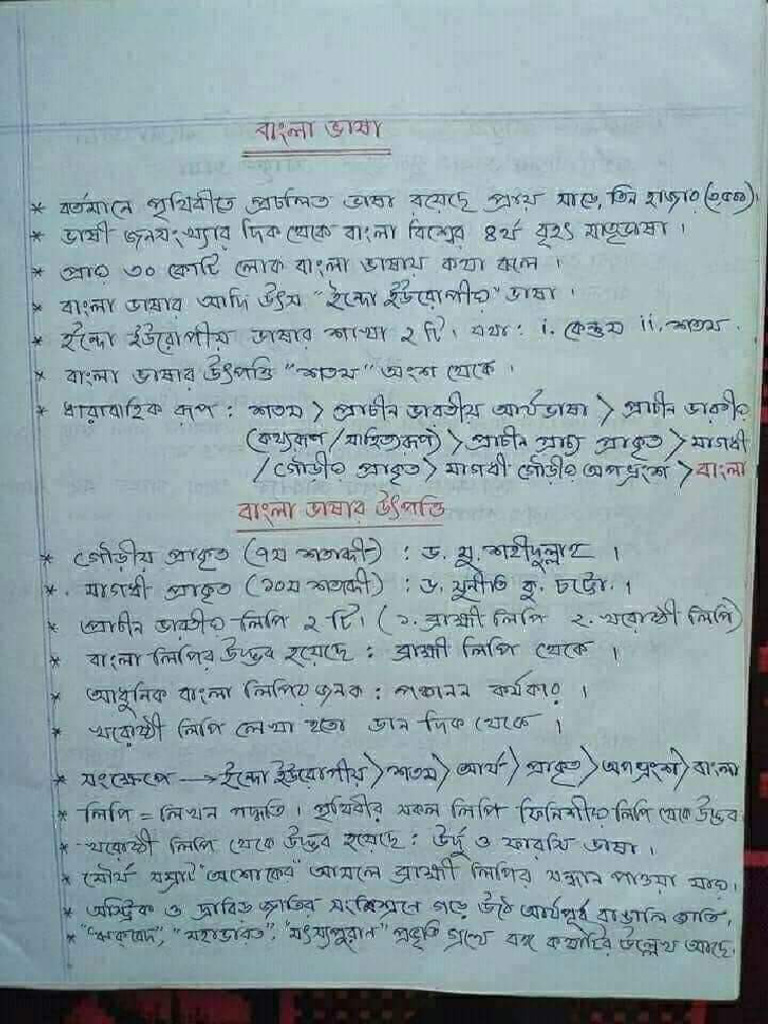 বাংলা ভাষা
* বর্তমানে পৃথিবীতে প্রচলিত ভাষা রয়েছে প্রায় সাড়ে তিন হাজার (৩৫০০)।
* ভাষী জনসংখ্যার দিক থেকে বাংলা বিশ্বের ৪র্থ বৃহৎ মাতৃভাষা।
* প্রায় ৩০ কোটি লোক বাংলা ভাষায় কথা বলে।
* বাংলা ভাষার আদি উৎস "ইন্দো ইউরোপীয়" ভাষা।
* ইন্দো ইউরোপীয় ভাষার শাখা ২ টি। যথা: i. কেন্তুম ii. শতম.
* বাংলা ভাষার উৎপত্তি "শতম" অংশ থেকে।
* ধারাবাহিক রূপ : শতম > প্রাচীন ভারতীয় আর্যভাষা > প্রাচীন ভারতীয়
(কথ্যরূপ / সাহিত্যরূপ) > প্রাচীন প্রাচ্য প্রাকৃত > মাগধী
/ গৌড়ীয় প্রাকৃত > মাগধী গৌড়ীয় অপভ্রংশ > বাংলা
বাংলা ভাষার উৎপত্তি
* গৌড়ীয় প্রাকৃত (৭ম শতাব্দী) : ড. মু. শহীদুল্লাহ।
* মাগধী প্রাকৃত (১০ম শতাব্দী) : ড. সুনীতি কু. চট্টো.।
* প্রাচীন ভারতীয় লিপি ২ টি। (১. ব্রাহ্মী লিপি ২. খরোষ্ঠী লিপি)
* বাংলা লিপির উদ্ভব হয়েছে : ব্রাহ্মী লিপি থেকে।
* আধুনিক বাংলা লিপির জনক : পঞ্চানন কর্মকার।
* খরোষ্ঠী লিপি লেখা হতো ডান দিক থেকে।
* সংক্ষেপে → ইন্দো ইউরোপীয় > শতম > আর্য > প্রাকৃত > অপভ্রংশ > বাংলা
* লিপি = লিখন পদ্ধতি। পৃথিবীর সকল লিপি ফিনিশীয় লিপি থেকে উদ্ভব.
* খরোষ্ঠী লিপি থেকে উদ্ভব হয়েছে : উর্দু ও ফারসি ভাষা।
* মৌর্য সম্রাট "অশোকের" আমলে ব্রাহ্মী লিপির সন্ধান পাওয়া যায়।
* অস্ট্রিক ও দ্রাবিড় জাতির সংমিশ্রণে গড়ে উঠে আর্যপূর্ব বাঙালি জাতি.
* "ঋকবেদ", "মহাভারত", "মৎস্যপুরান" প্রভৃতি গ্রন্থে বঙ্গ কথাটির উল্লেখ আছে.